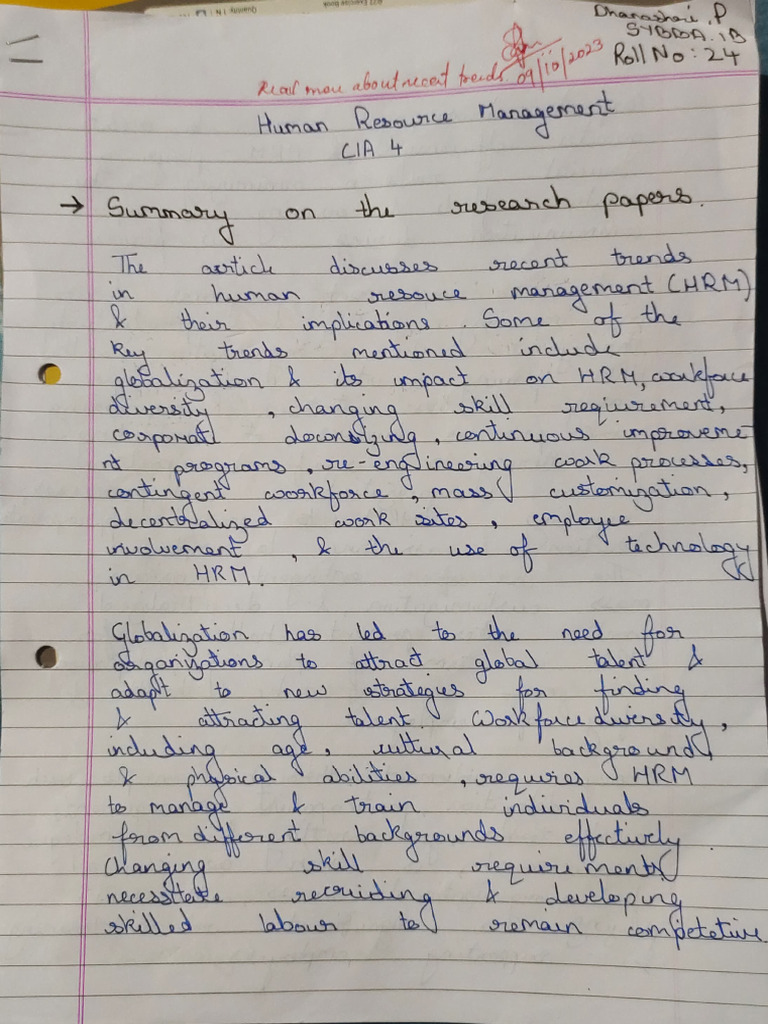 Dhanashari. P
SYBBA. 1B
Roll No : 24
Read more about recent trends
09/10/2023
Human Resource Management
CIA 4
→ Summary on the research papers.
The article discusses recent trends
in human resouce management (HRM)
& their implications. Some of the
key trends mentioned include
globalization & its impact on HRM, workforce
diversity , changing skill requirement,
corporate downsizing , continuous improveme
nt programs , re-engineering work processes,
contingent workforce , mass customization ,
decentralized work sites , employee
involvement , & the use of technology
in HRM.
Globalization has led to the need for
organizations to attract global talent &
adapt to new strategies for finding
& attracting talent. Workforce diversity,
including age, cultural background
& physical abilities , requires HRM
to manage & train individuals
from different backgrounds effectively
Changing skill requirements
necessitate recruiding & developing
skilled labour to remain competetive